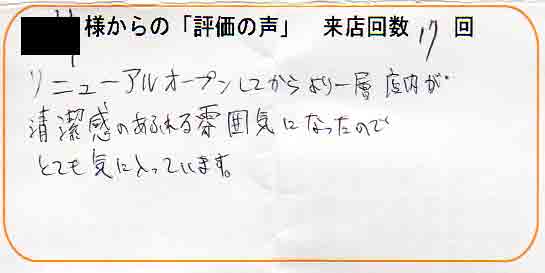 様からの「評価の声」 来店回数 17 回
リニューアルオープンしてからより一層店内が
清潔感のあふれる雰囲気になったので
とても気に入っています。